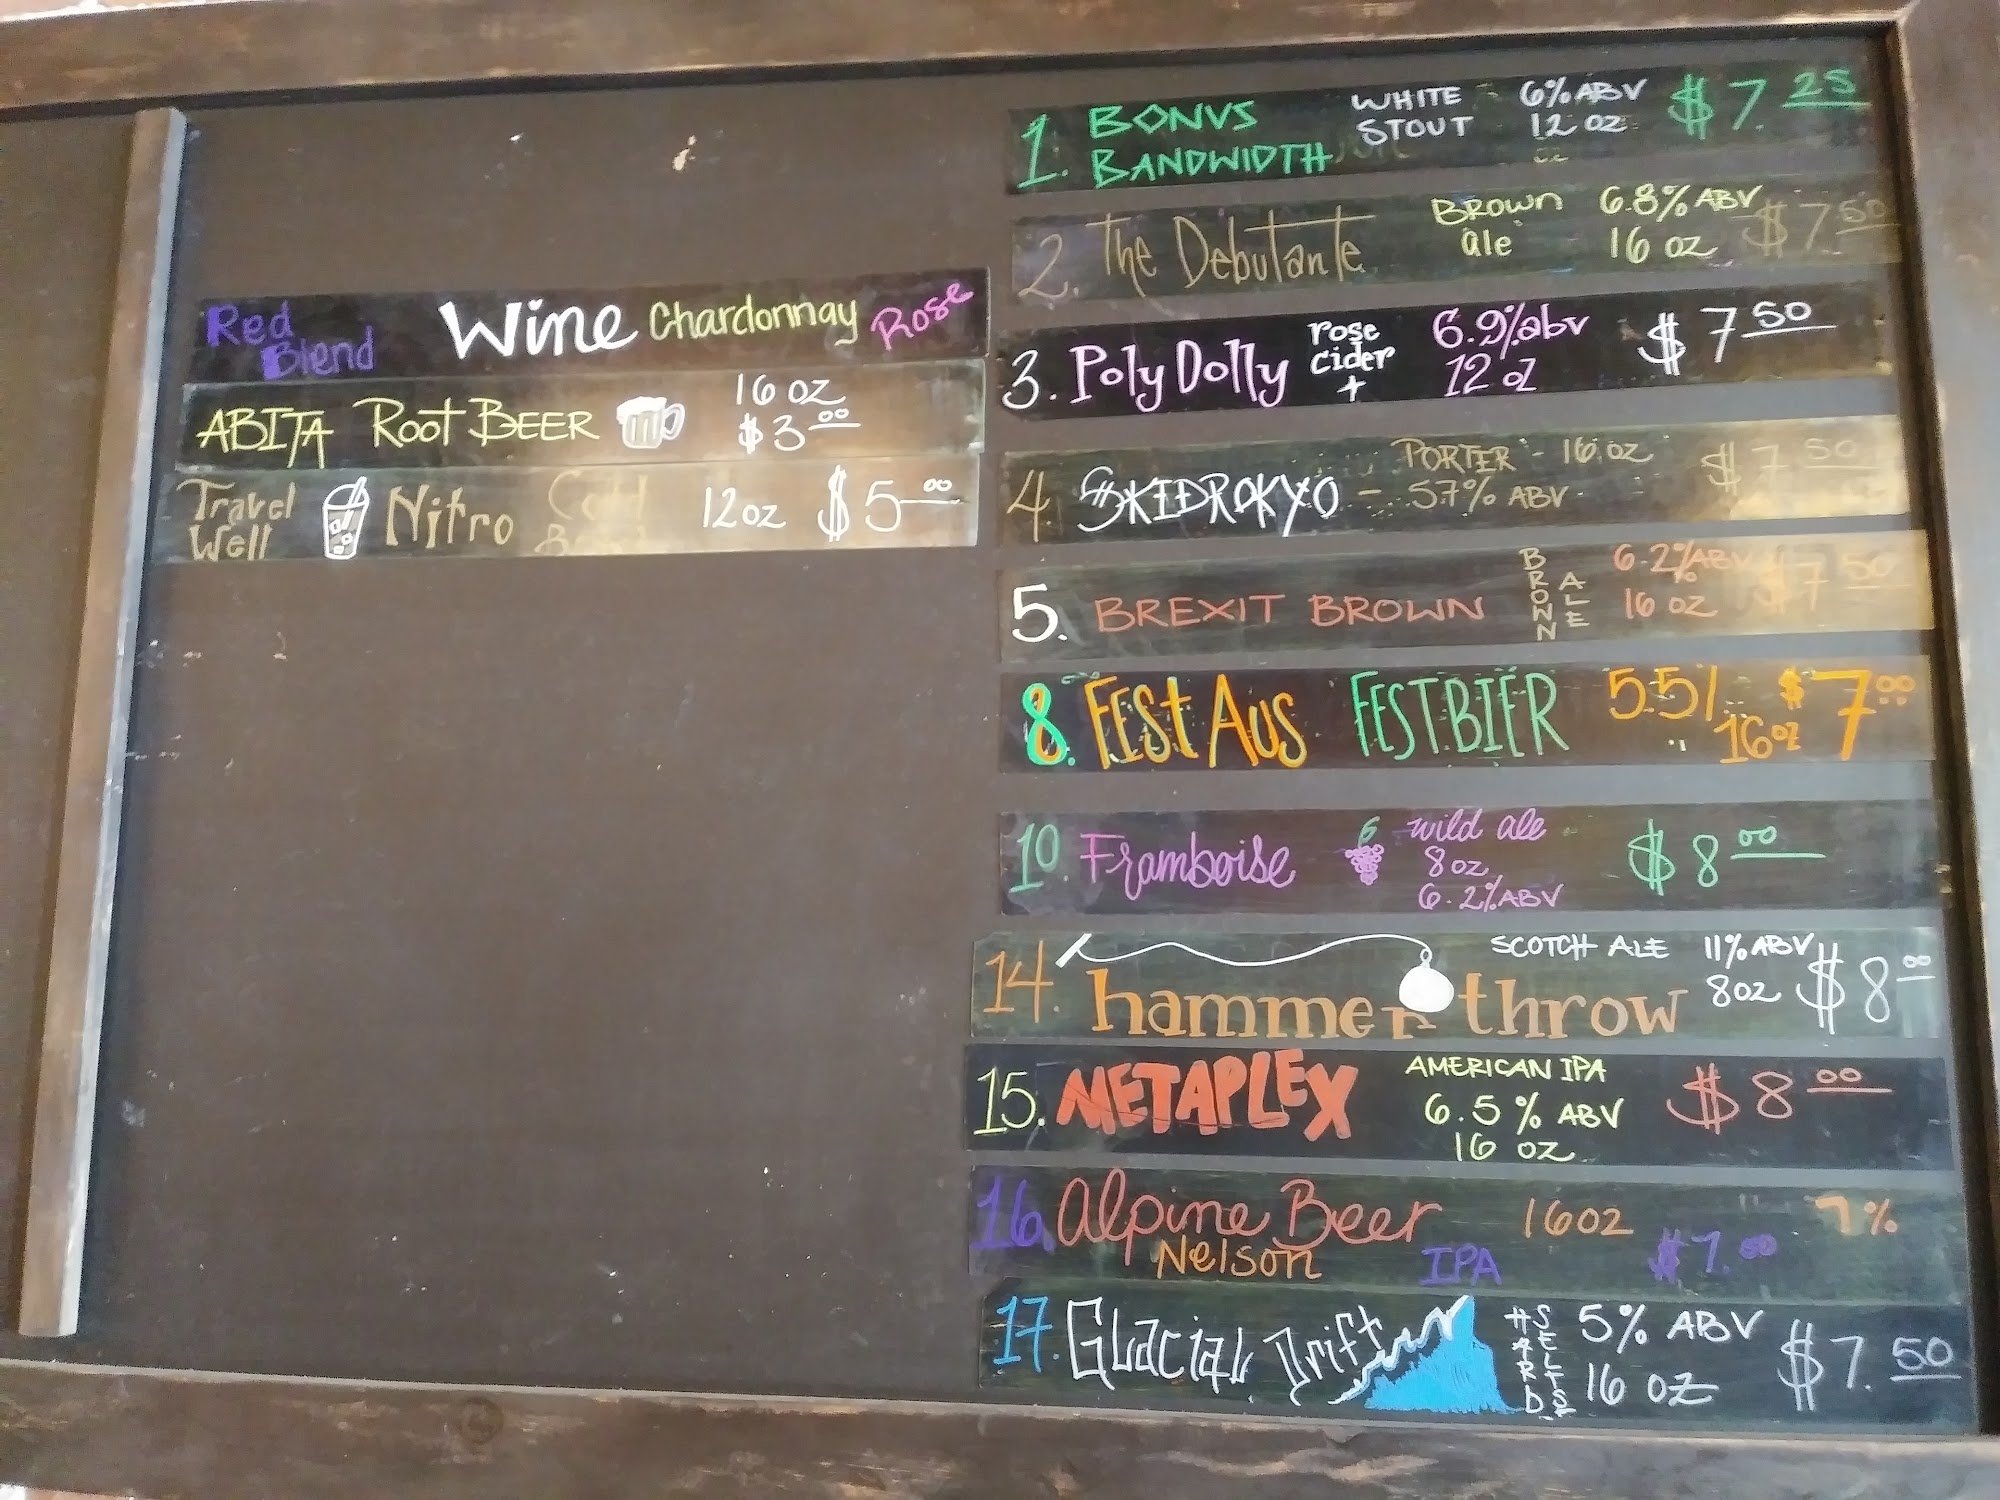 Red Blend Wine Chardonnay Rose
ABITA Root BEER 16 oz $3.00
Travel Well Nitro Cold 12oz $5.00
1. BONUS BANDWIDTH WHITE STOUT 6% ABV 12 oz $7.25
2. The Debutante Brown ale 6.8% ABV 16 oz $7.50
3. Poly Dolly rose cider + 6.9% abv 12 oz $7.50
4. SKIDROKYO - PORTER - 16 oz - 5.7% ABV $7.50
5. BREXIT BROWN BROWN ALE 6.2% ABV 16 oz $7.50
8. FEST AUS FESTBIER 5.5% 16oz $7.00
10. Framboise wild ale 8oz 6.2% ABV $8.00
14. hammer throw SCOTCH ALE 11% ABV 8oz $8.00
15. METAPLEX AMERICAN IPA 6.5% ABV 16 oz $8.00
16. Alpine Beer Nelson IPA 16oz $7.00 7%
17. Glacial Drift HARD SELTS 5% ABV 16 oz $7.50